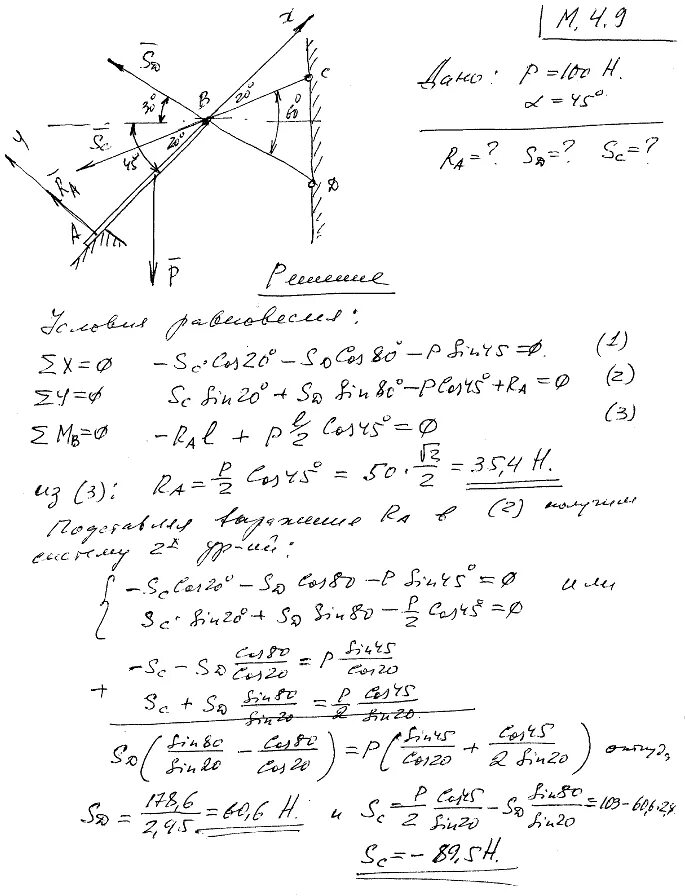 М. 4. 9
Дано: P = 100 Н.
α = 45°
R_A = ? S_D = ? S_C = ?
x
S̅_D
C
B
20°
30°
60°
S̅_C
20°
y
45°
R̅_A
D
A
P̅
Решение
Условия равновесия:
ΣX = 0 -S_C·Cos20° - S_D Cos80° - P Sin45 = 0. (1)
ΣY = 0 S_C Sin20° + S_D Sin80° - P Cos45° + R_A = 0 (2)
ΣM_B = 0 -R_A l + P l/2 Cos45° = 0 (3)
из (3): R_A = P/2 Cos45° = 50 · √2/2 = 35,4 Н.
Подставляя выражения R_A в (2) получим
систему 2х ур-ий:
{ -S_C Cos20° - S_D Cos80 - P Sin45° = 0 или
S_C · Sin20° + S_D Sin80 - P/2 Cos45° = 0
-S_C - S_D Cos80/Cos20 = P Sin45/Cos20
+ S_C + S_D Sin80/Sin20 = P/2 Cos45/Sin20
S_D (Sin80/Sin20 - Cos80/Cos20) = P (Sin45/Cos20 + Cos45/2 Sin20) откуда,
S_D = 178,6/2,95 = 60,6 Н. и S_C = P/2 Cos45/Sin20 - S_D Sin80/Sin20 = 103 - 60,6·2,8
S_C = - 89,5 Н.